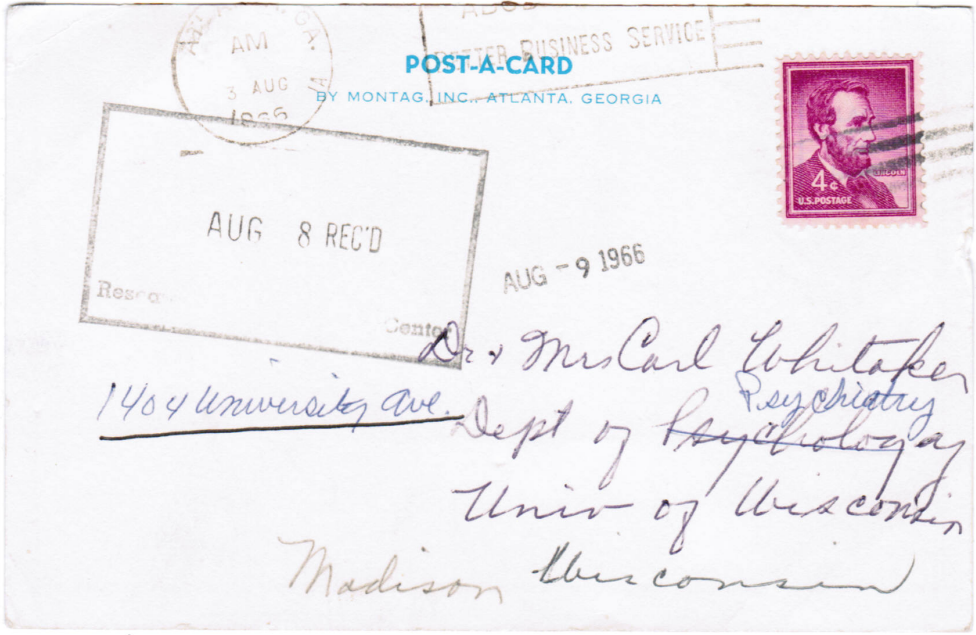 ATLANTA, GA.
AM
3 AUG
1966
BETTER BUSINESS SERVICE
POST-A-CARD
BY MONTAG, INC., ATLANTA, GEORGIA
4¢
LINCOLN
U.S. POSTAGE
AUG 8 REC'D
Center
AUG -9 1966
Dr & Mrs Carl Whitaker
Psychiatry
1404 University Ave.
Dept of Psychology
Univ of Wisconsin
Madison Wisconsin